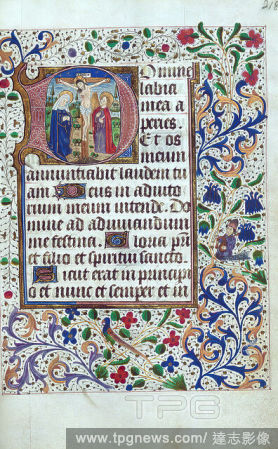 218
Domine
labia
mea a
peries.
Et os
meum
annuntiabit laudem tu
am Deus in adiuto
rium meum intende. Do
mine ad adiuvandum
me festina. Gloria pri
et filio et spiritui sancto.
Sicut erat in principi
o et nunc et semper et in
TPG
www.tpgnews.com/ 達志影像